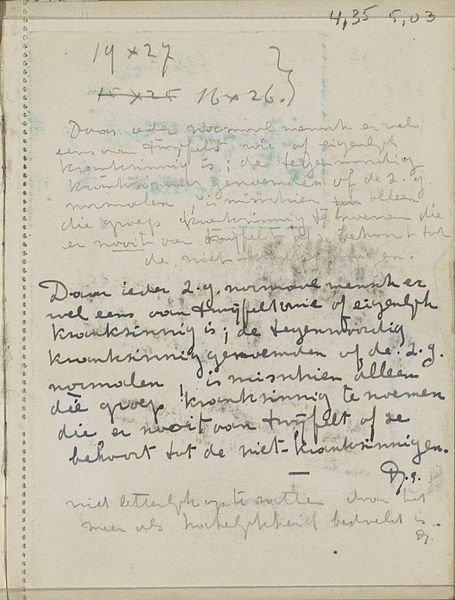 4,35 5,03
19 x 27
15 x 25 16 x 26.}
Daar ieder normaal mensch er wel
eens van twijfelt wie of eigenlyk
krankzinnig is; de tegenwoordig
krankzinnig genoemden of de z.g.
normalen, is misschien alleen
die groep krankzinnig te noemen die
er nooit van twijfelt of ze behoort tot
de niet-krankzinnigen.
Daar ieder z.g. normaal mensch er
wel eens van twijfelt wie of eigenlyk
krankzinnig is; de tegenwoordig
krankzinnig genoemden of de z.g.
normalen, is misschien alleen
dié groep krankzinnig te noemen
die er nooit van twijfelt of ze
behoort tot de niet-krankzinnigen.
niet letterlyk op te vatten daar het
meer als bedoeld is.